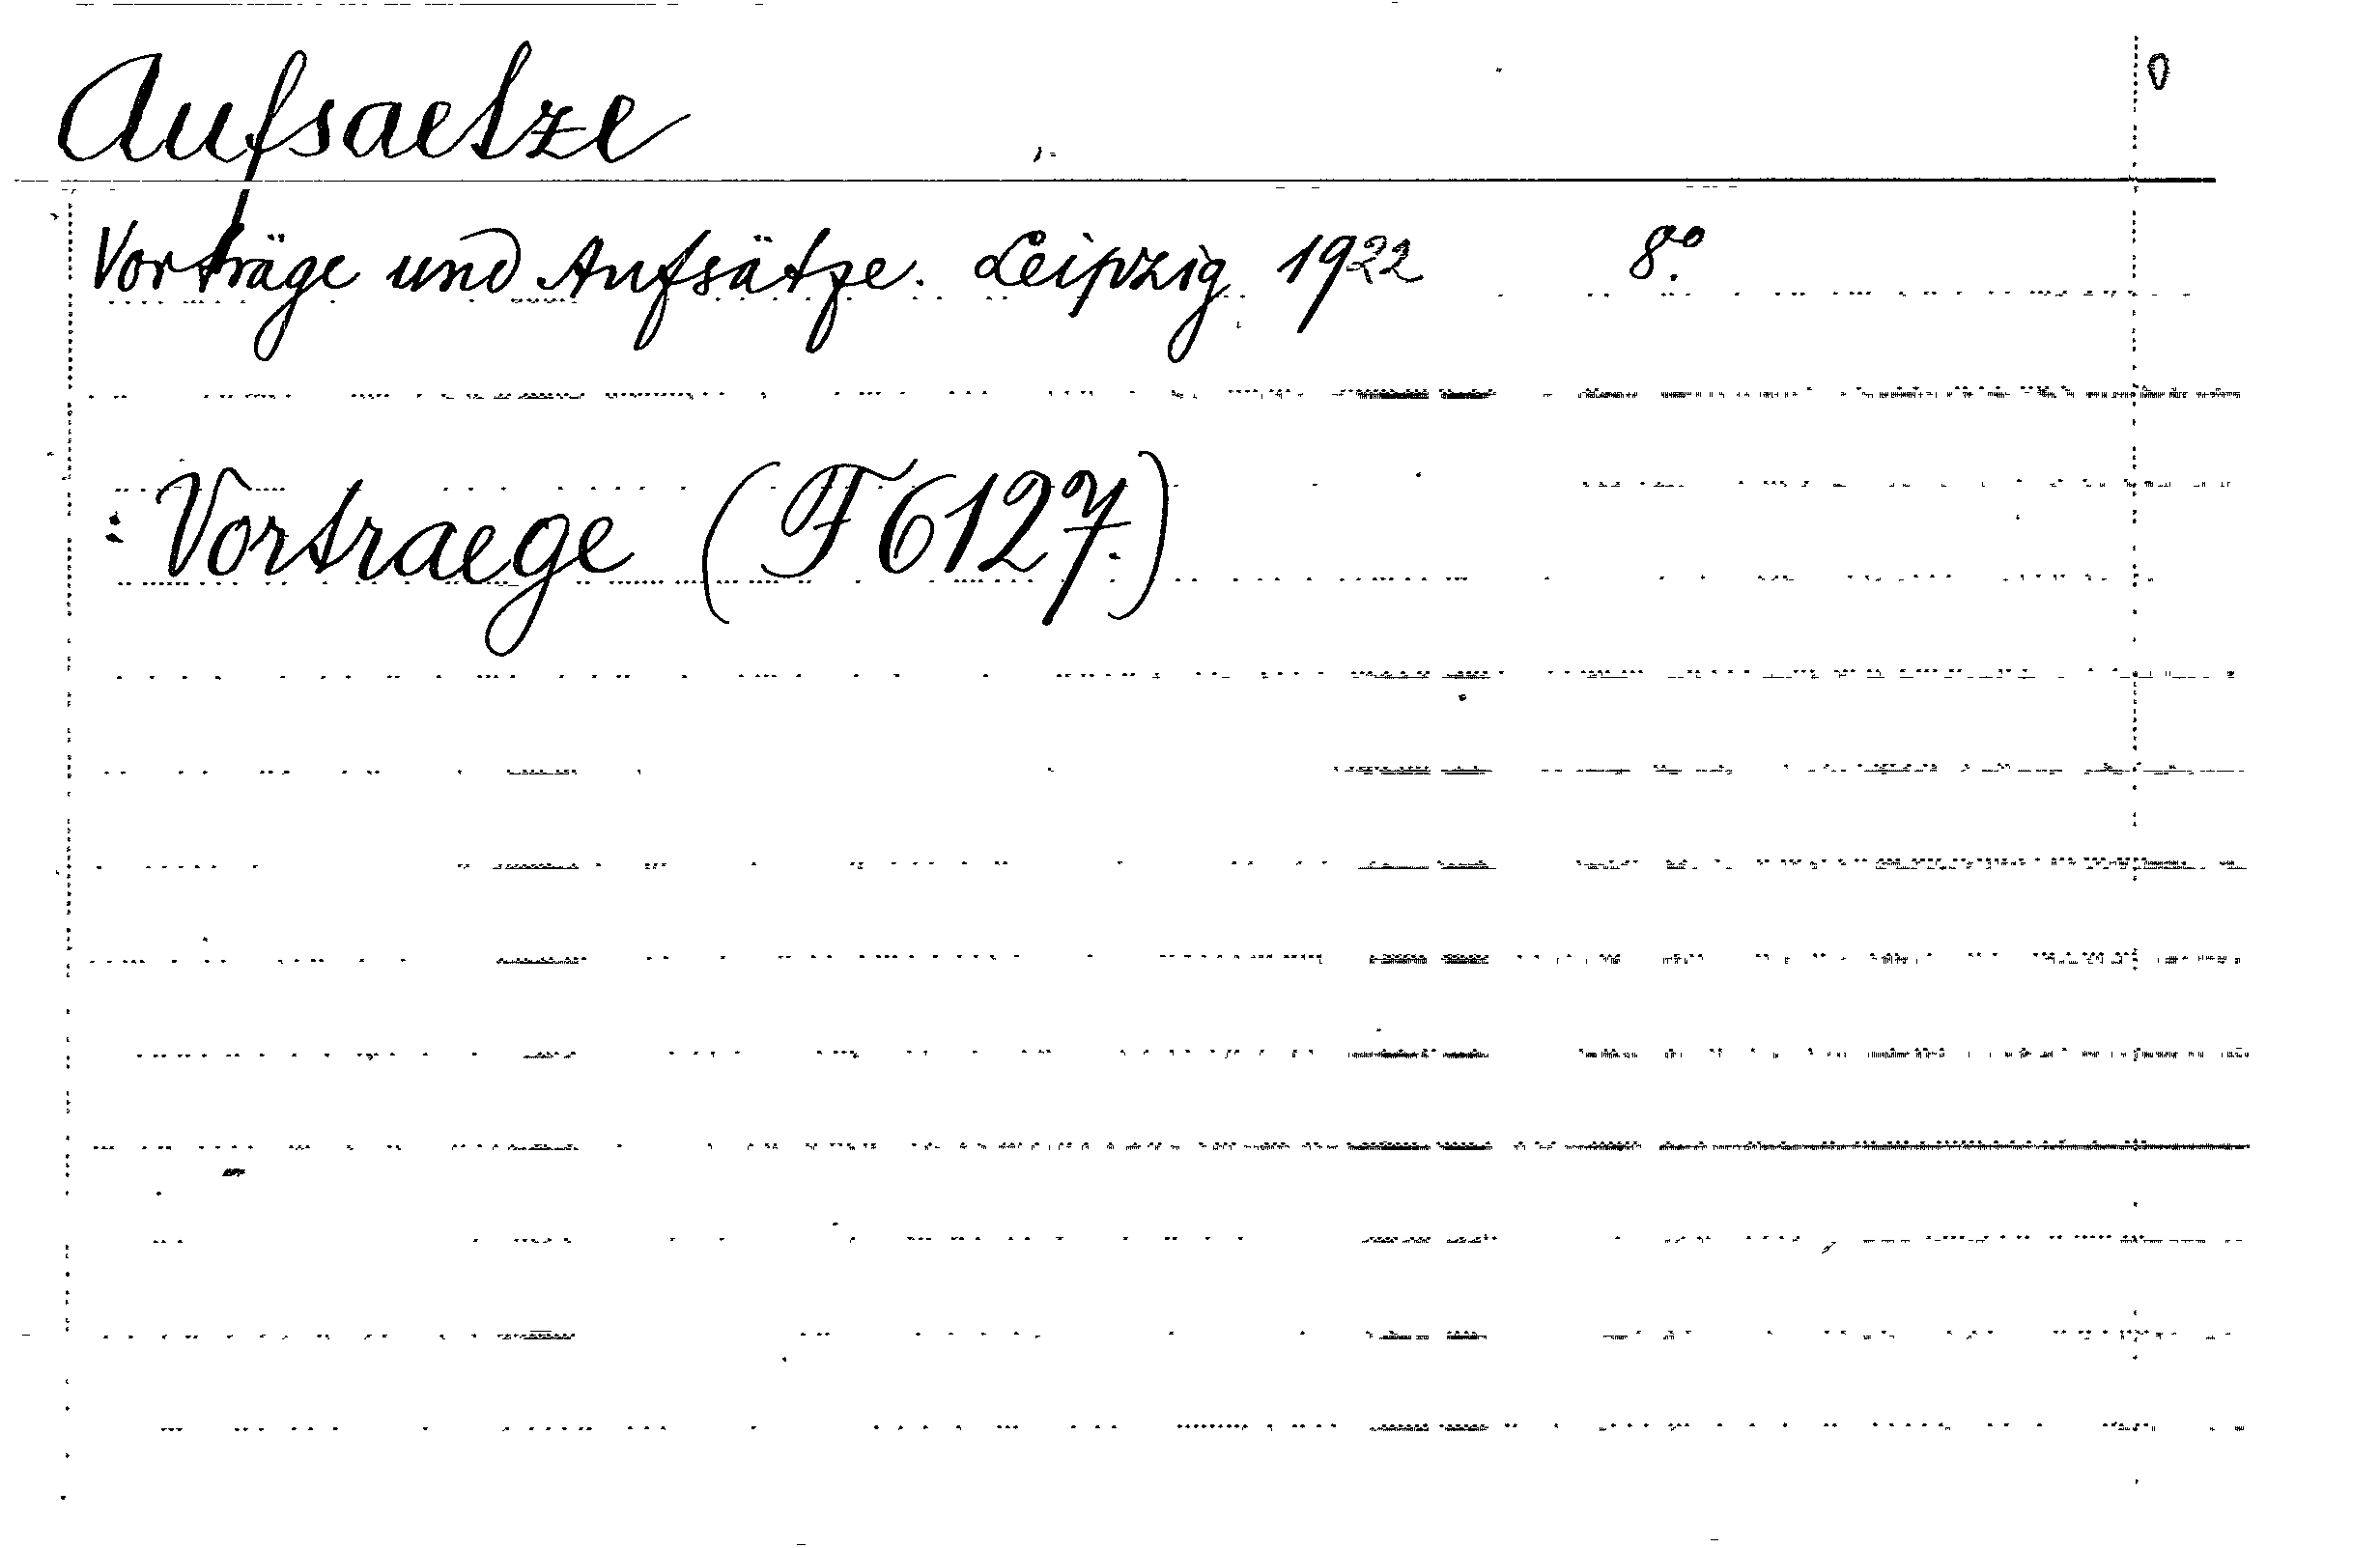 Aufsaetze
0
Vorträge und Aufsätze. Leipzig 1922 8.º
: Vortraege (F 6127.)